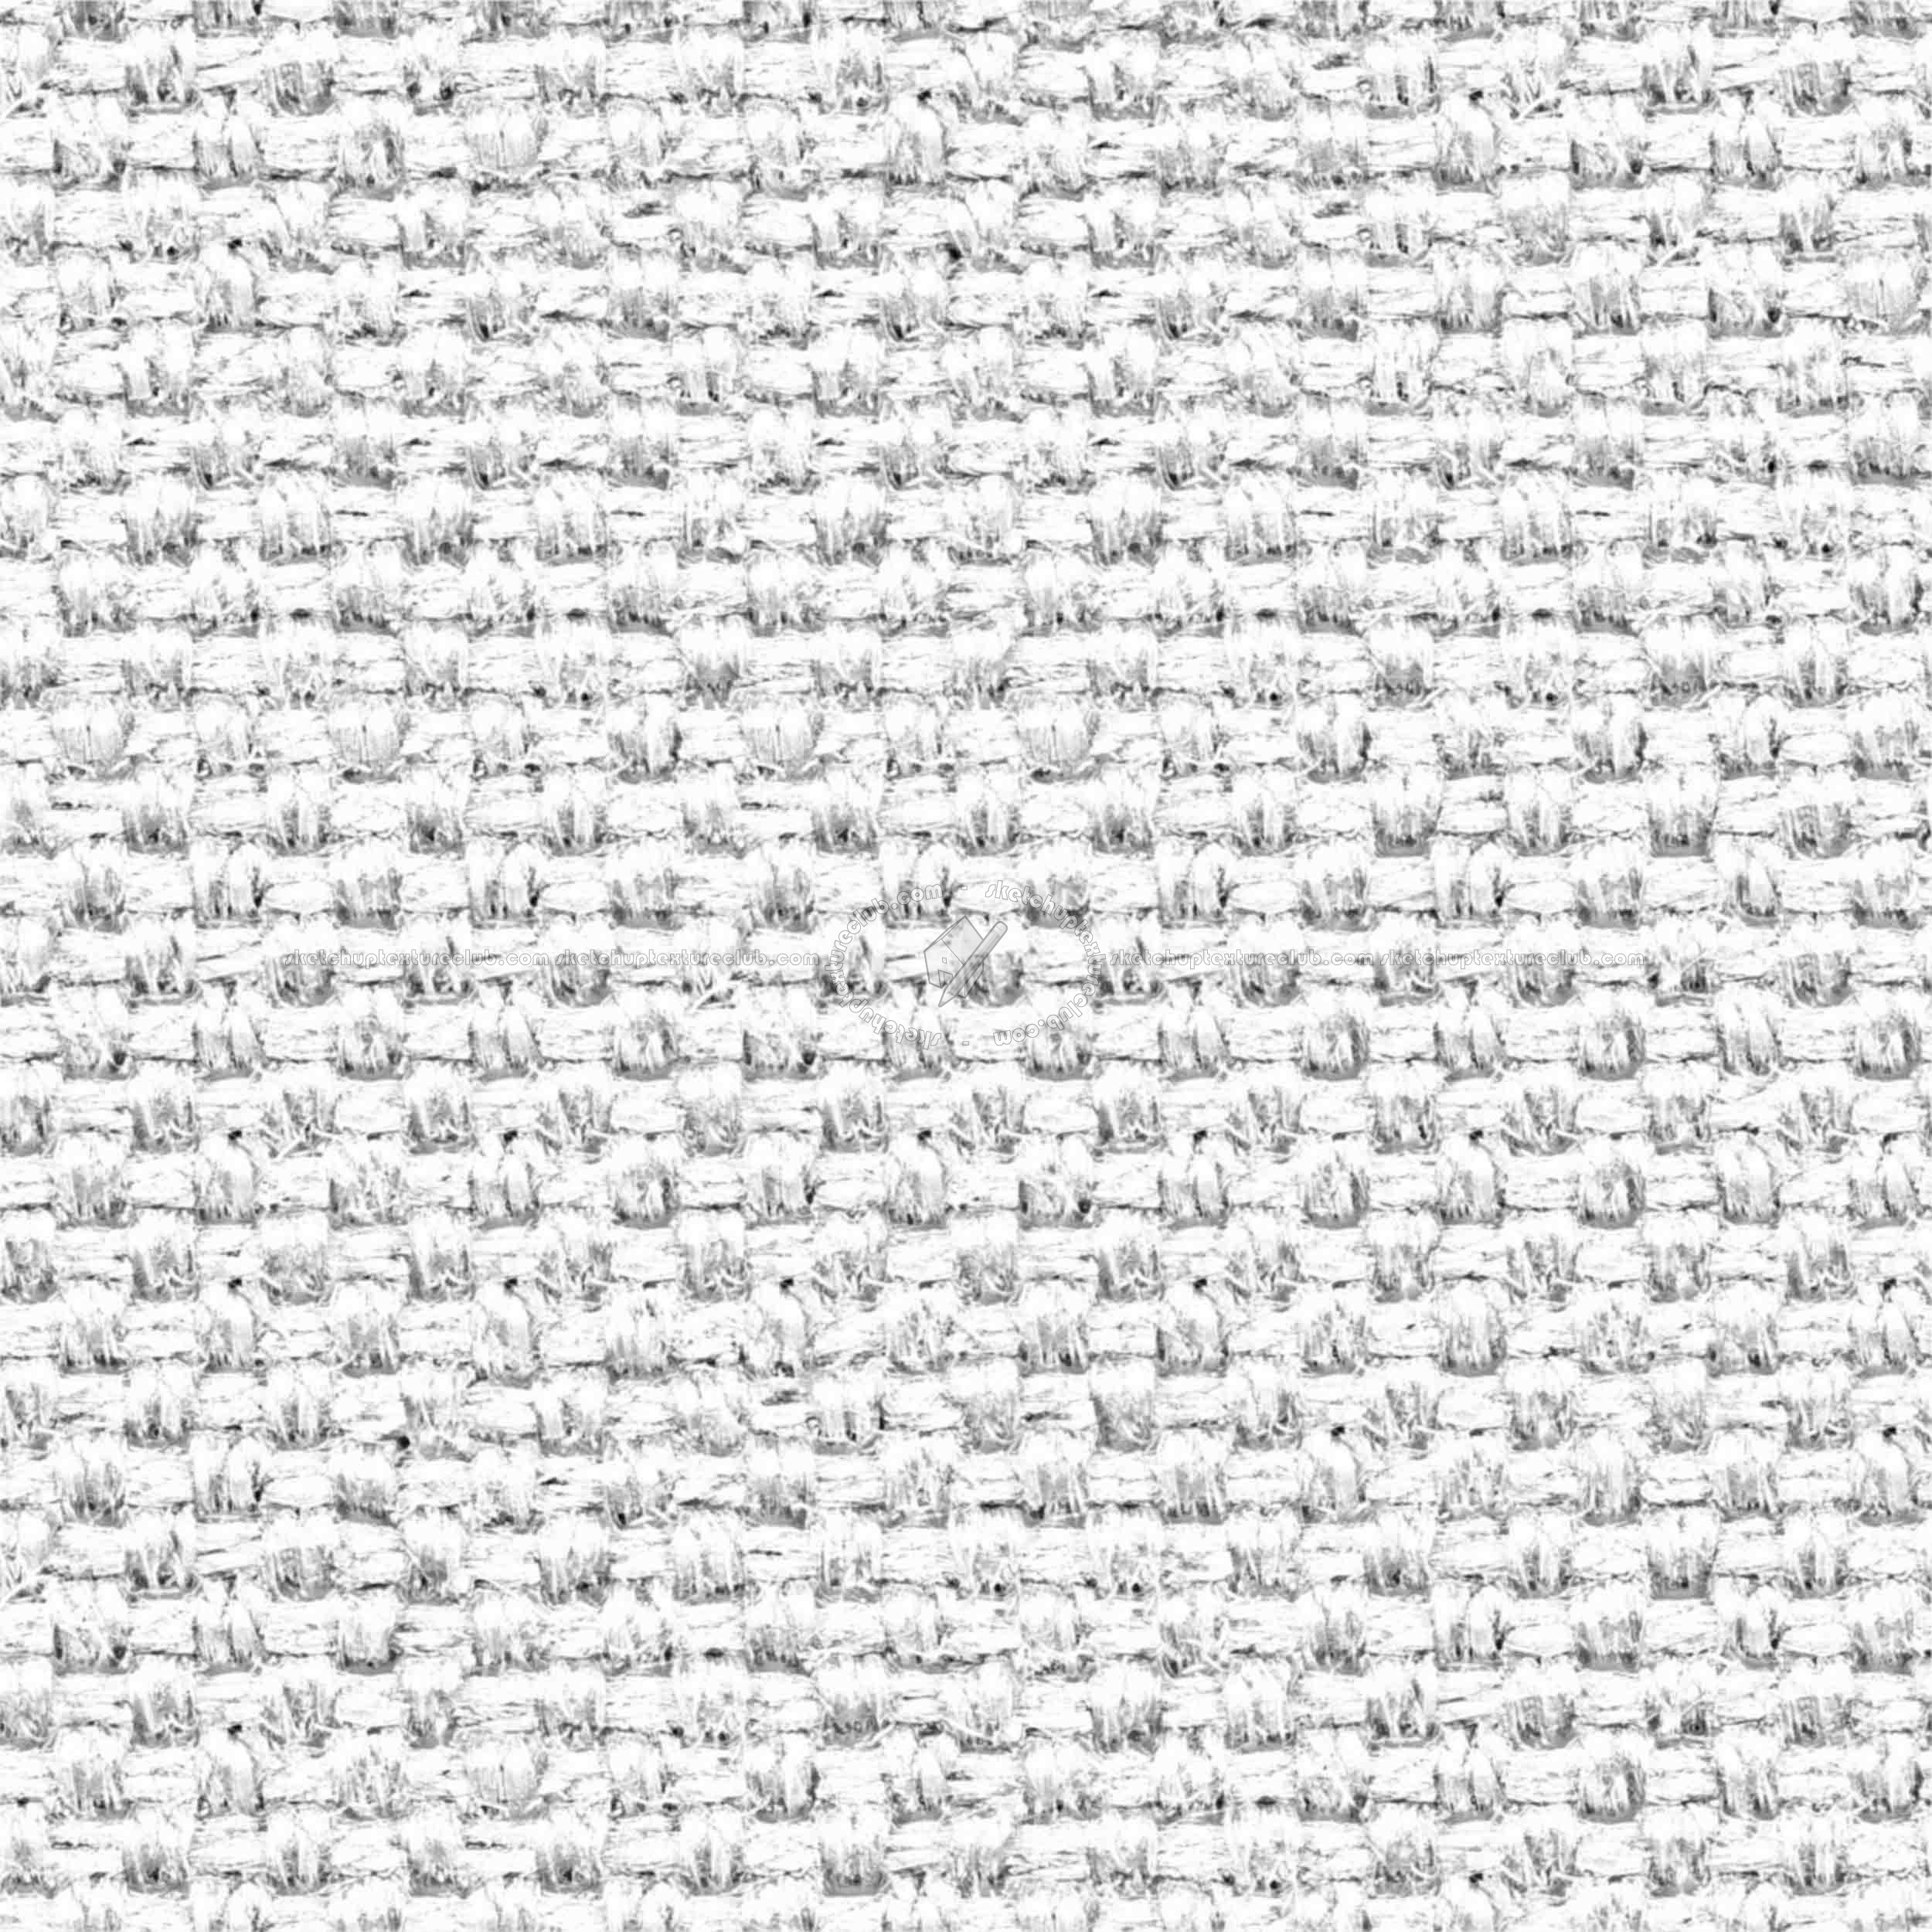 sketchuptextureclub.com - sketchuptextureclub.com - sketchuptextureclub.com -
sketchuptextureclub.com sketchuptextureclub.com sketchuptextureclub.com sketchuptextureclub.com